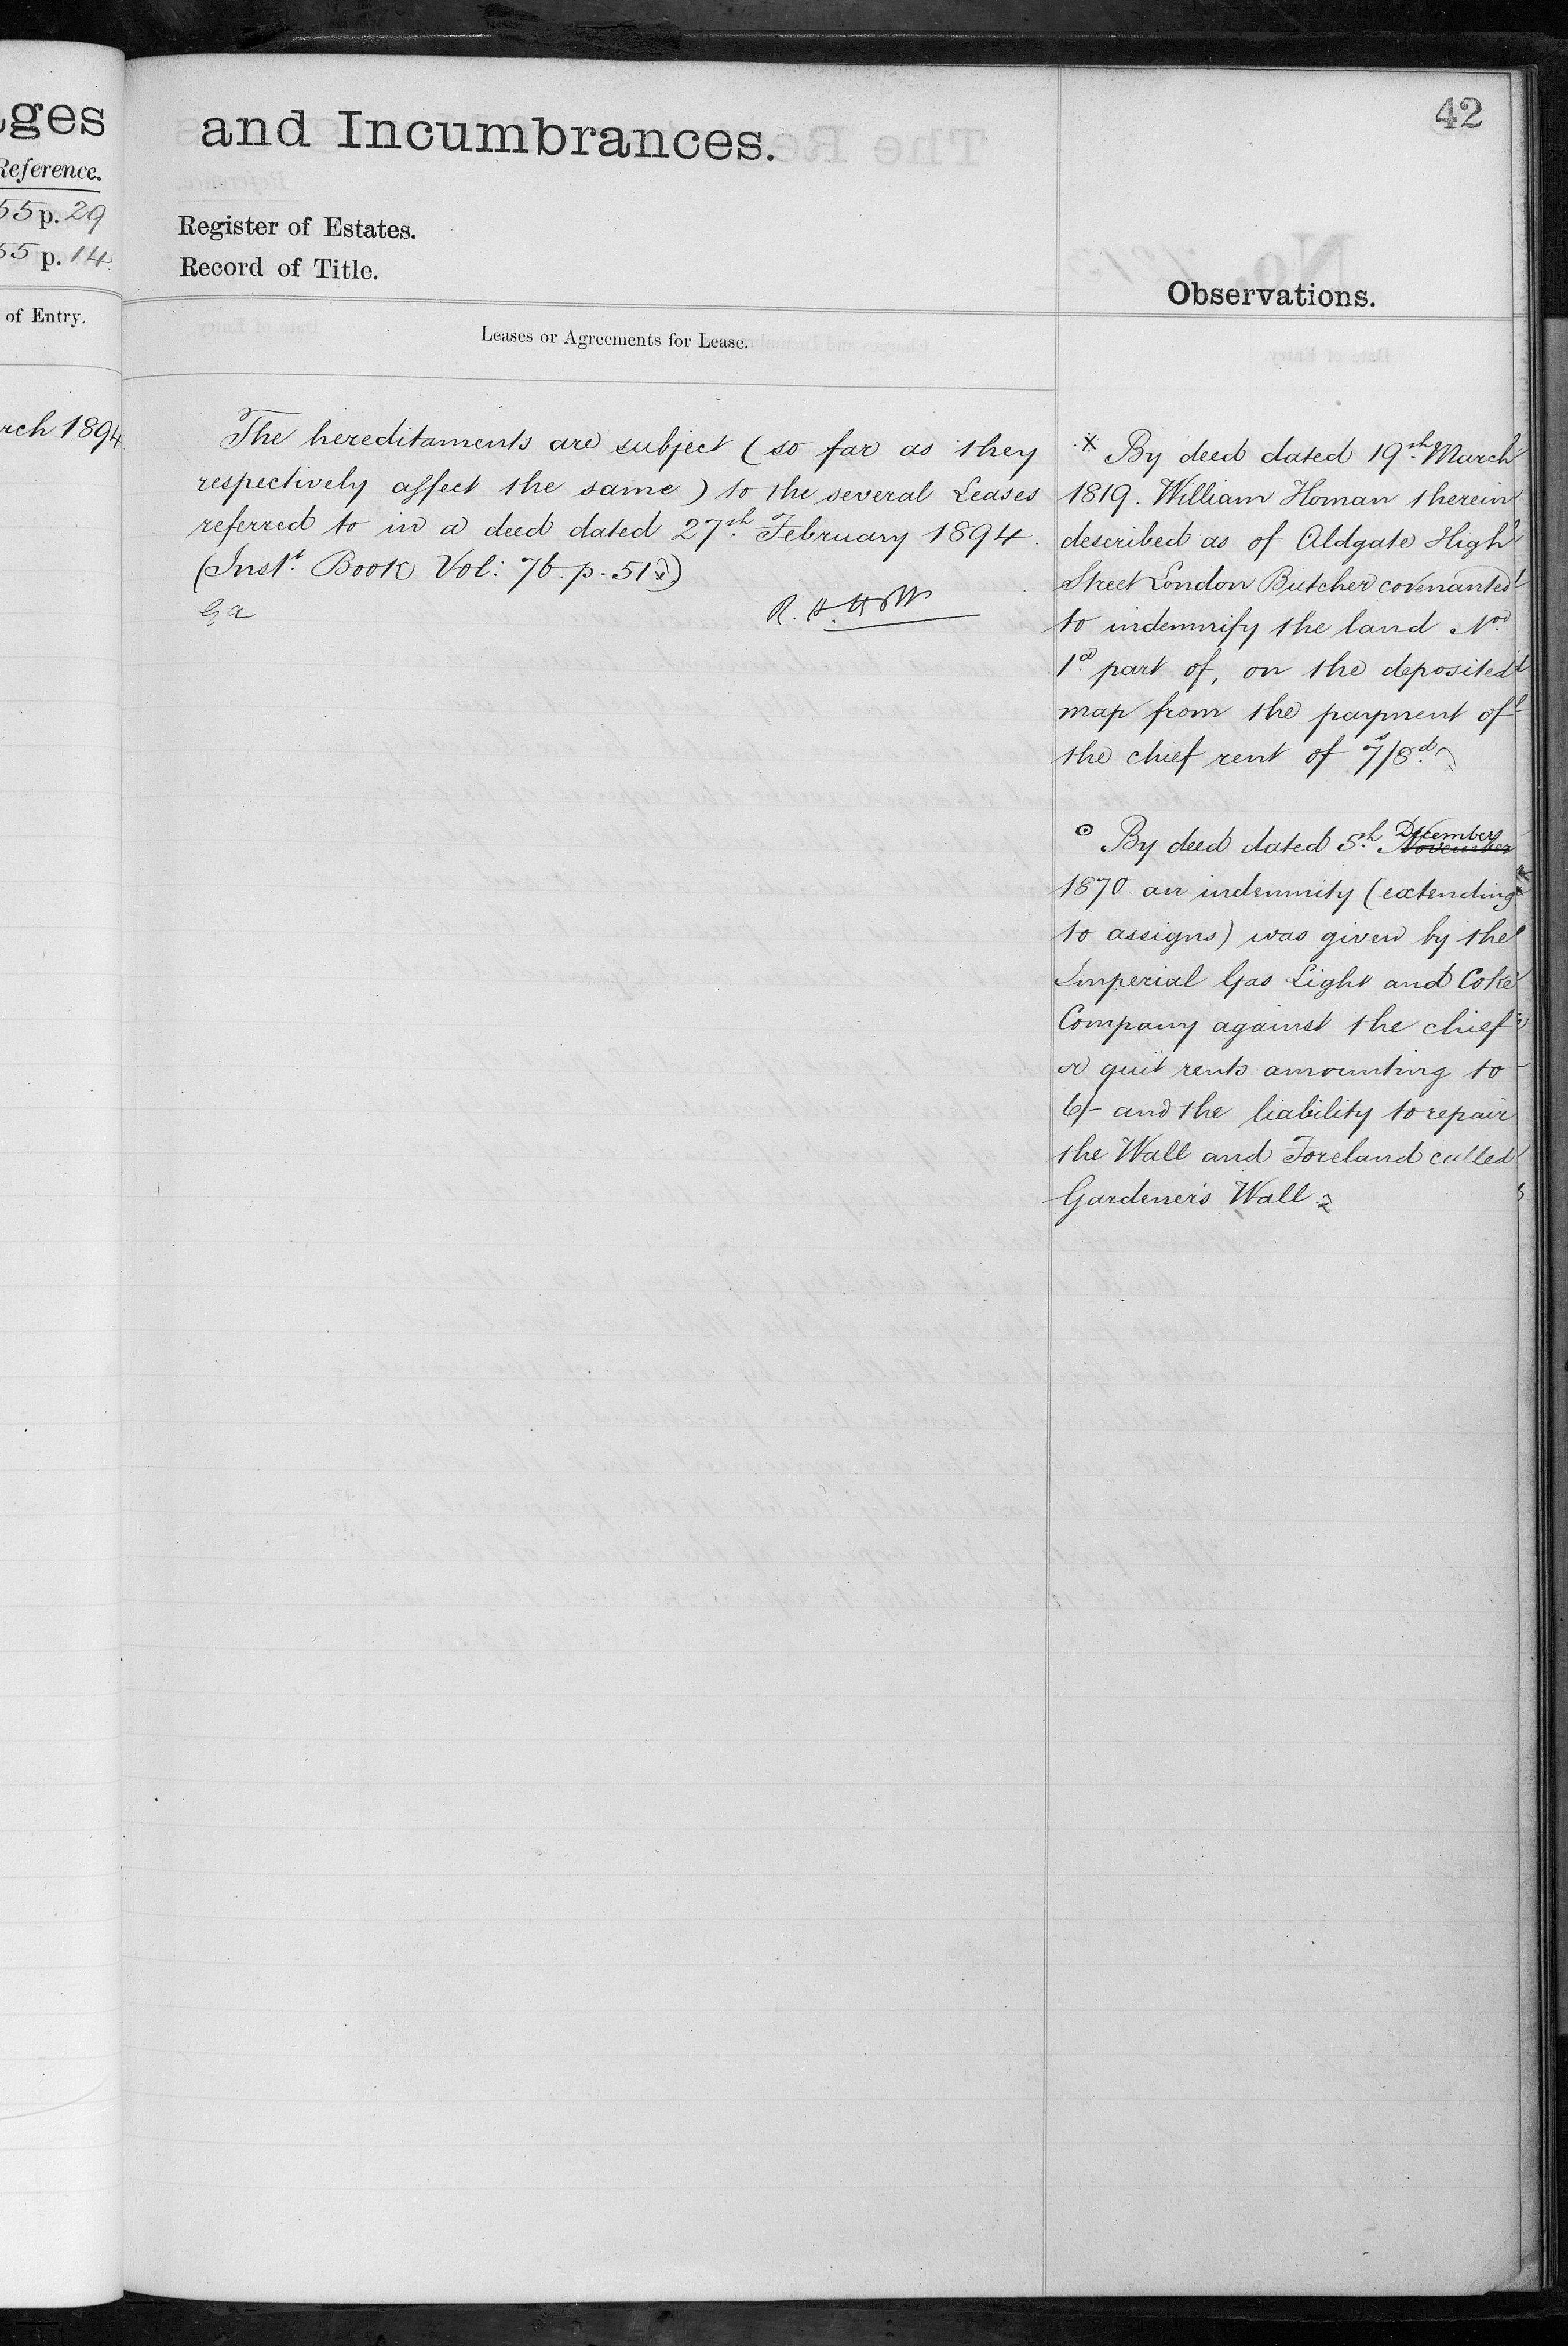 ges
Reference.
55 p. 29
55 p. 14.
of Entry.
rch 1894
42
and Incumbrances.
Register of Estates.
Record of Title.
Leases or Agreements for Lease.
The hereditaments are subject (so far as they
respectively affect the same) to the several Leases
referred to in a deed dated 27th February 1894.
(Inst. Book Vol: 76. p. 51)
Observations.
x By deed dated 19th March
1819. William Homan therein
described as of Aldgate High
Street London Butcher covenanted
to indemnify the land Nod
1a part of, on the deposited
map from the payment of
the chief rent of 7s/8d.
⊙ By deed dated 5th ~~November~~ December
1870. an indemnity (extending
to assigns) was given by the
Imperial Gas Light and Coke
Company against the chief
or quit rents amounting to
6/- and the liability to repair
the Wall and Foreland called
Gardener's Wall.